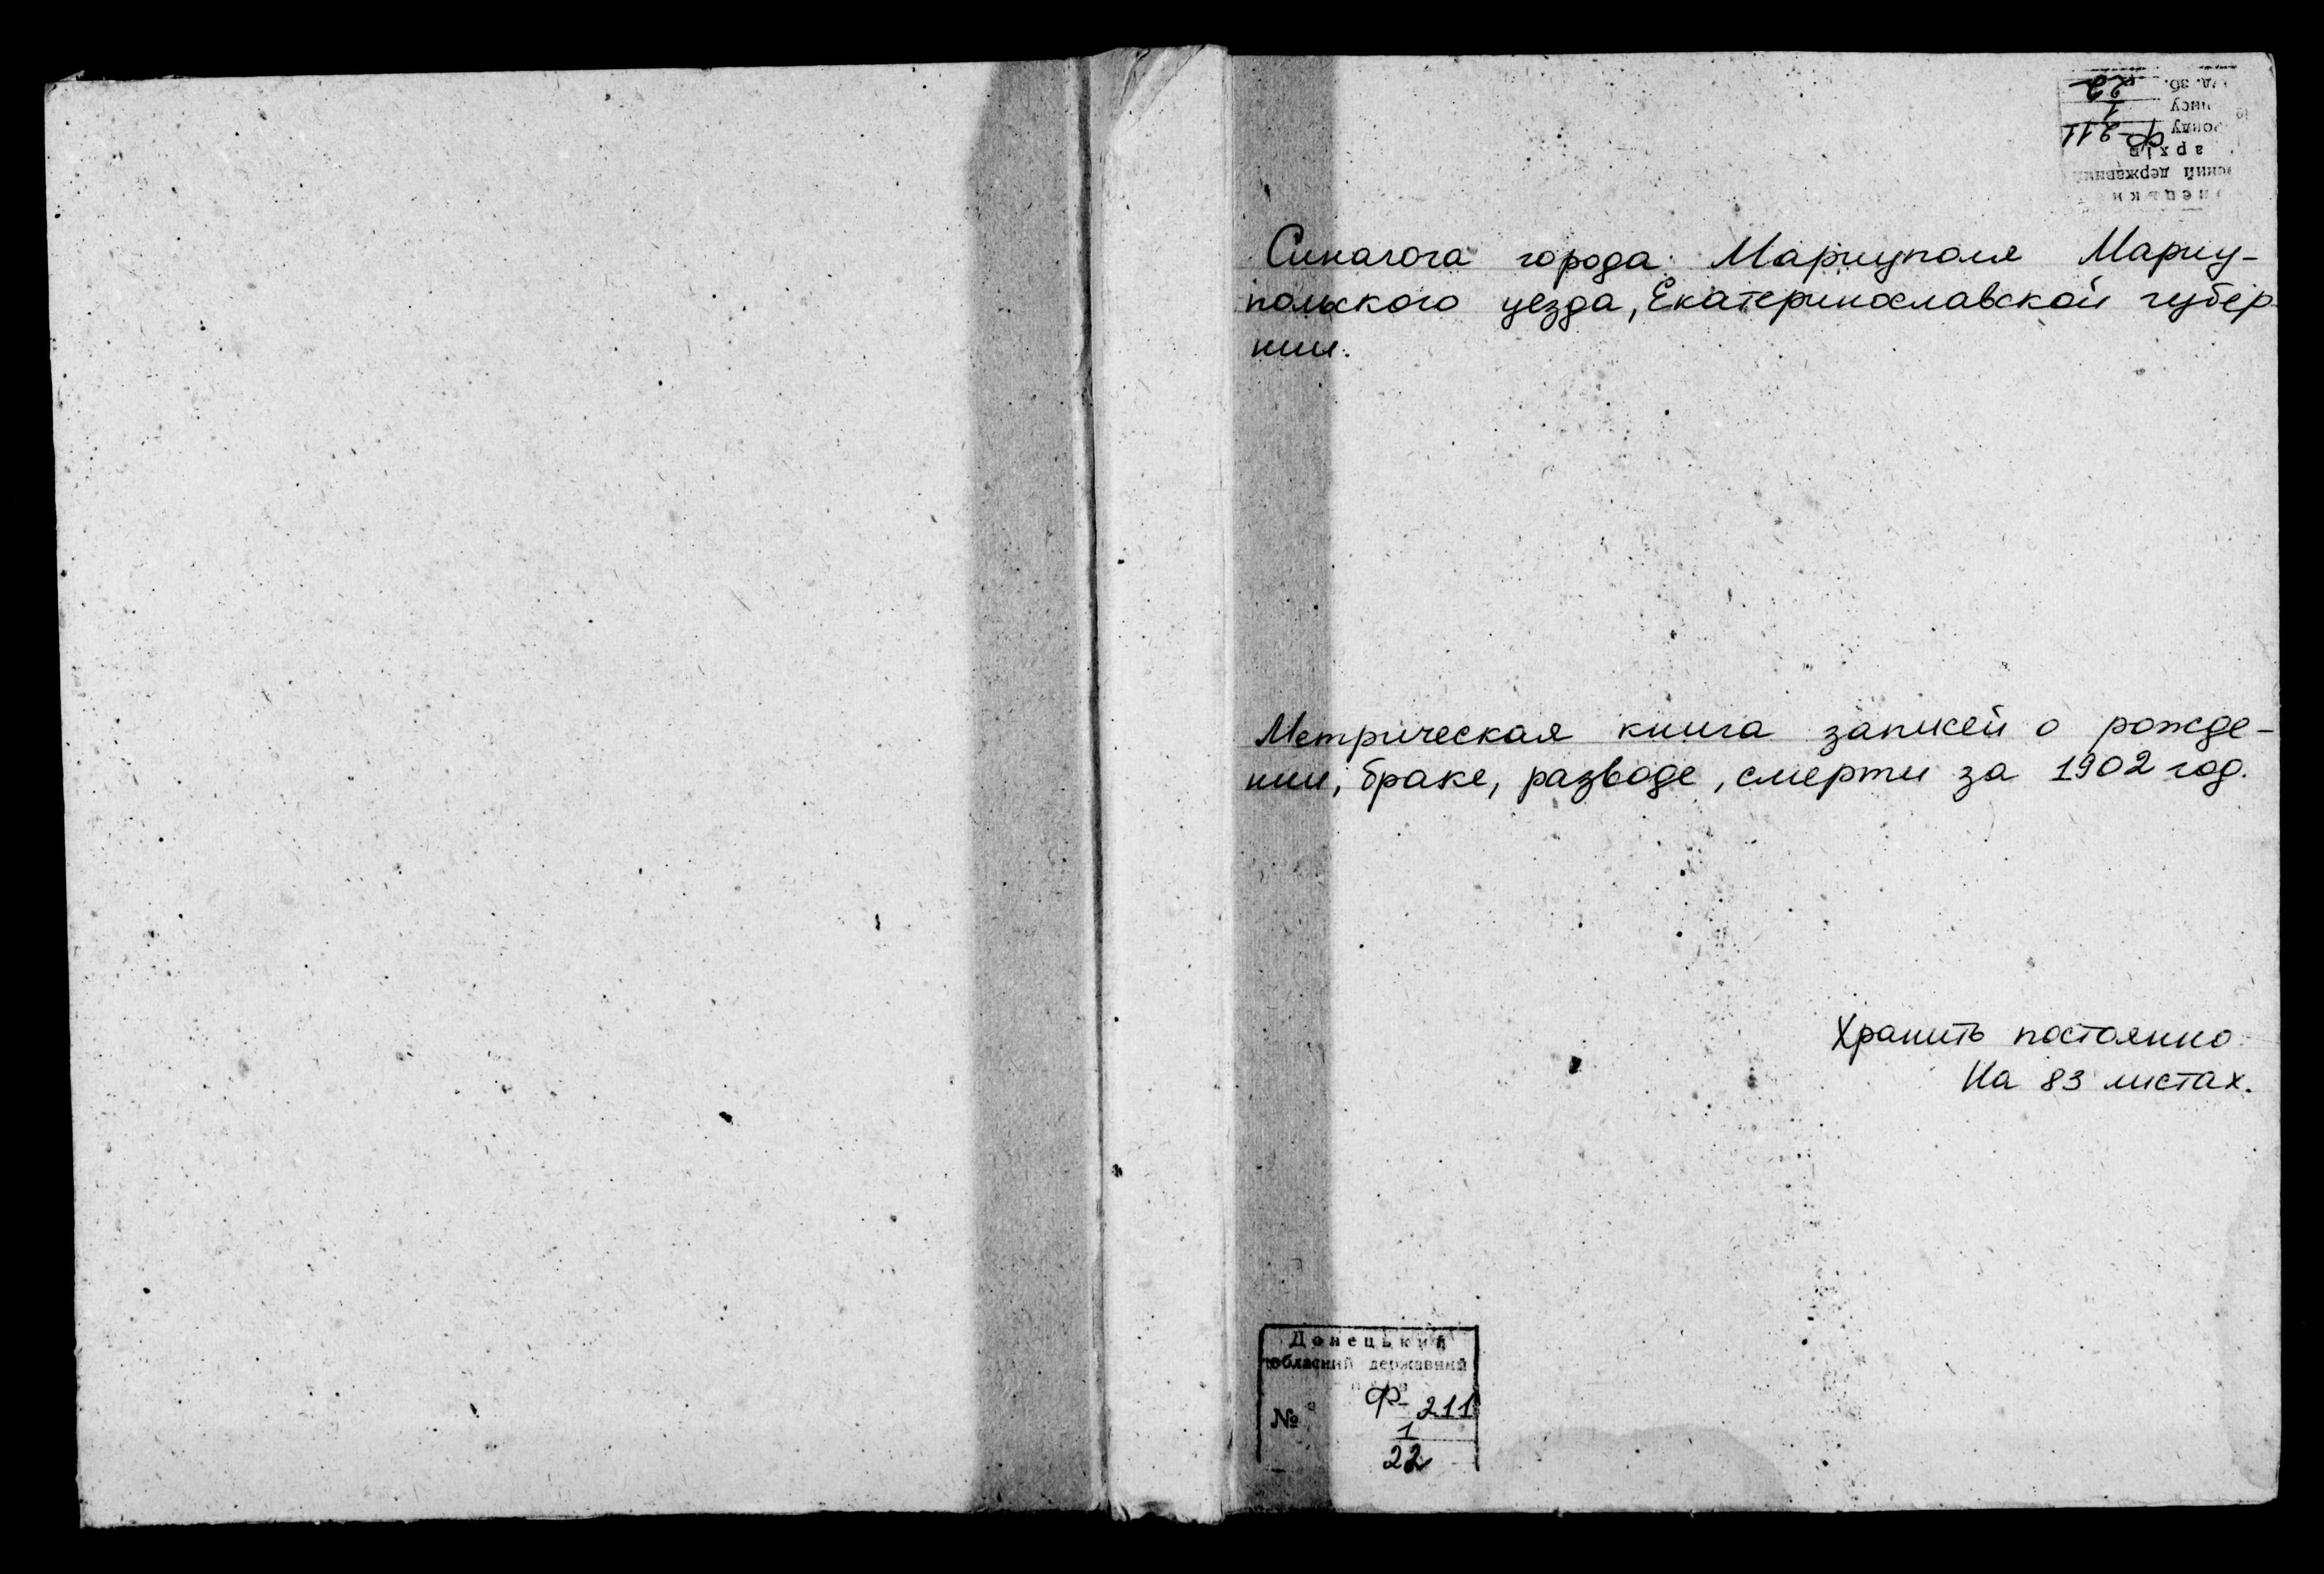 Синагога города Мариуполя Мариу-
польского уезда, Екатеринославской губер-
нии.
Метрическая книга записей о рожде-
нии, браке, разводе, смерти за 1902 год.
Хранить постоянно.
На 83 листах.
Донецький
обласний державний
№ Ф-211
1
22
Ф-211
1
22